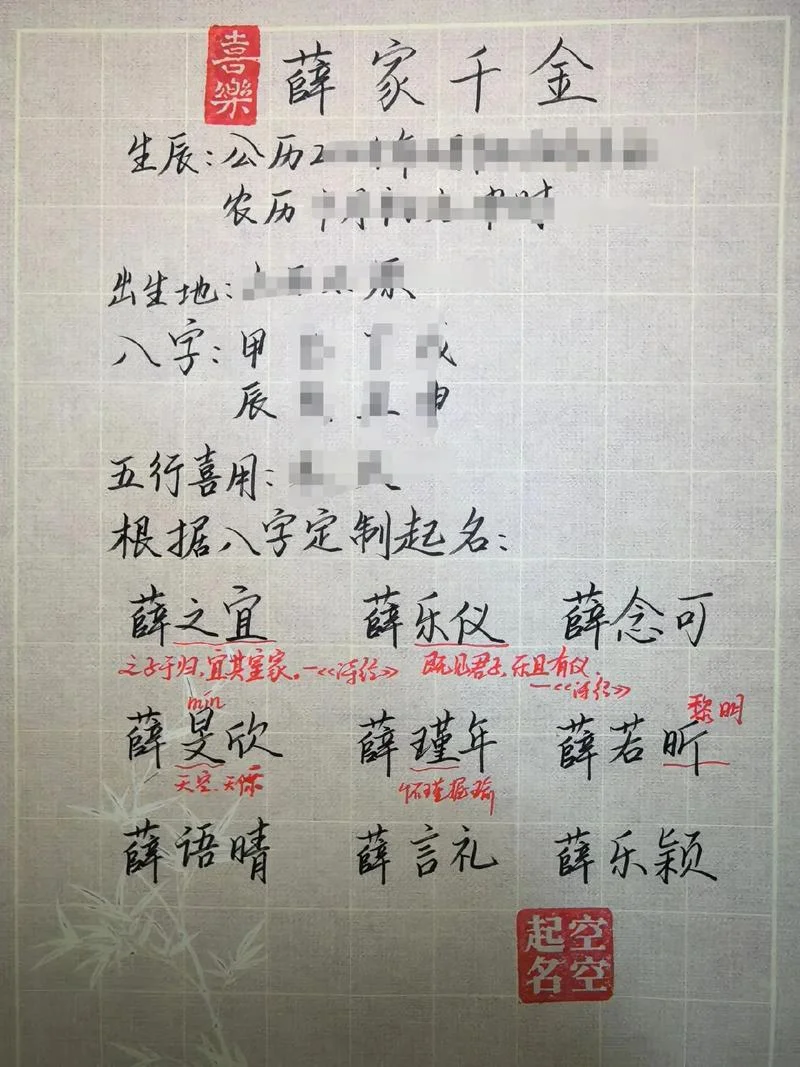 喜樂
薛家千金
生辰：公历2
农历
出生地： 原
八字：甲 戊
辰 申
五行喜用：
根据八字定制起名：
薛之宜 薛乐仪 薛念可
之子于归，宜其室家。—《诗经》 既见君子，乐且有仪。—《诗经》
mín 黎明
薛旻欣 薛瑾年 薛若昕
天空、天际 怀瑾握瑜
薛语晴 薛言礼 薛乐颖
空空起名